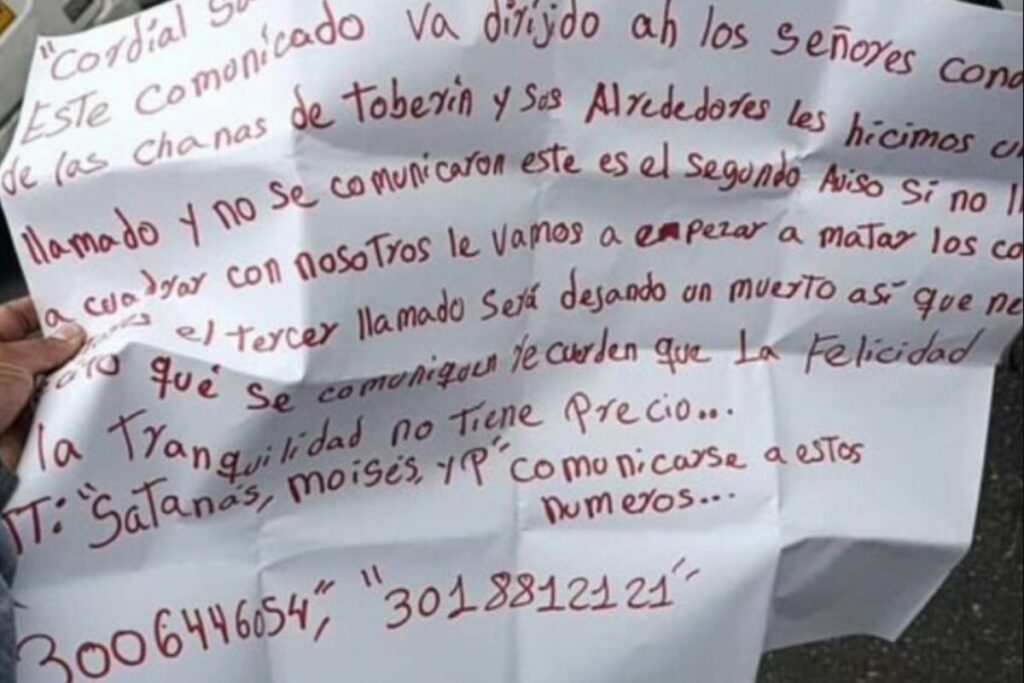 "Cordíal
Este comonicado va dirijdo ah los señores cond
de las chanas de Toberín y sos Alrededores les hicimos
llamado y no se comunicaron este es el segundo Aviso si no ll
a cuadrar con nosotros le vamos a empezar a matar los co
el tercer llamado será dejando un muerto así que
qué se comuniquen recuerden que La Felicidad
la Tranquilidad no Tiene Precio...
"Satanás, moisés, y P" comonicarse a estos
numeros...
3006446054", "3018812121"